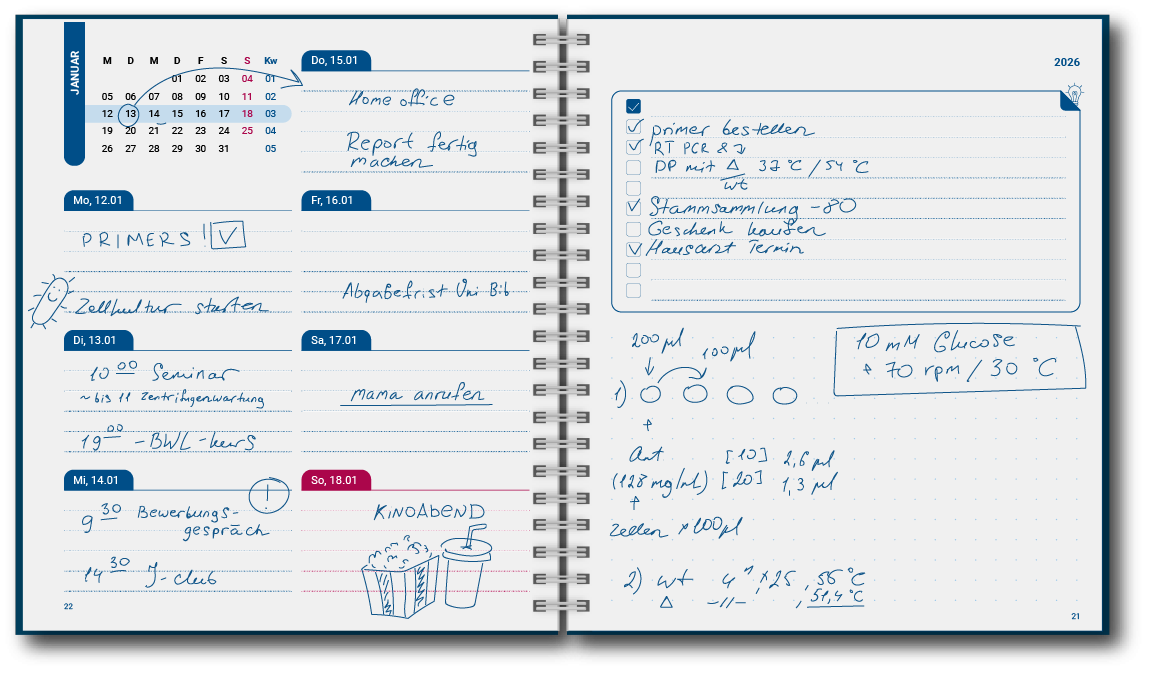 JANUAR
M D M D F S S Kw
01 02 03 04 01
05 06 07 08 09 10 11 02
12 13 14 15 16 17 18 03
19 20 21 22 23 24 25 04
26 27 28 29 30 31 05
Mo, 12.01
PRIMERS!
Zellkultur starten
Di, 13.01
10 00 Seminar
~ bis 11 Zentrifugenwartung
19 00 - BWL-kurs
Mi, 14.01
!
9 30 Bewerbungs-
gespräch
14 30 J-club
22
Do, 15.01
Home office
Report fertig
machen
Fr, 16.01
Abgabefrist Uni Bib
Sa, 17.01
mama anrufen
So, 18.01
KINOABEND
2026
primer bestellen
RT PCR &
DP mit Δ 37 °C / 54 °C
wt
Stammsammlung -80
Geschenk kaufen
Hausarzt Termin
200 µl
100 µl
1)
10 mM Glucose
+ 70 rpm / 30 °C
+
Ant [10] 2,6 µl
(128 mg/mL) [20] 1,3 µl
+
Zellen × 100 µl
2) wt 4 × 25, 56 °C
Δ -//- , 51,4 °C
21